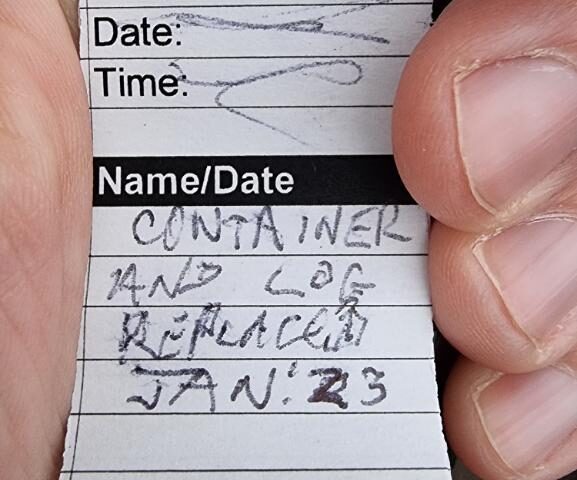 Date:
Time:
Name/Date
CONTAINER
AND LOG
REPLACED
JAN '23